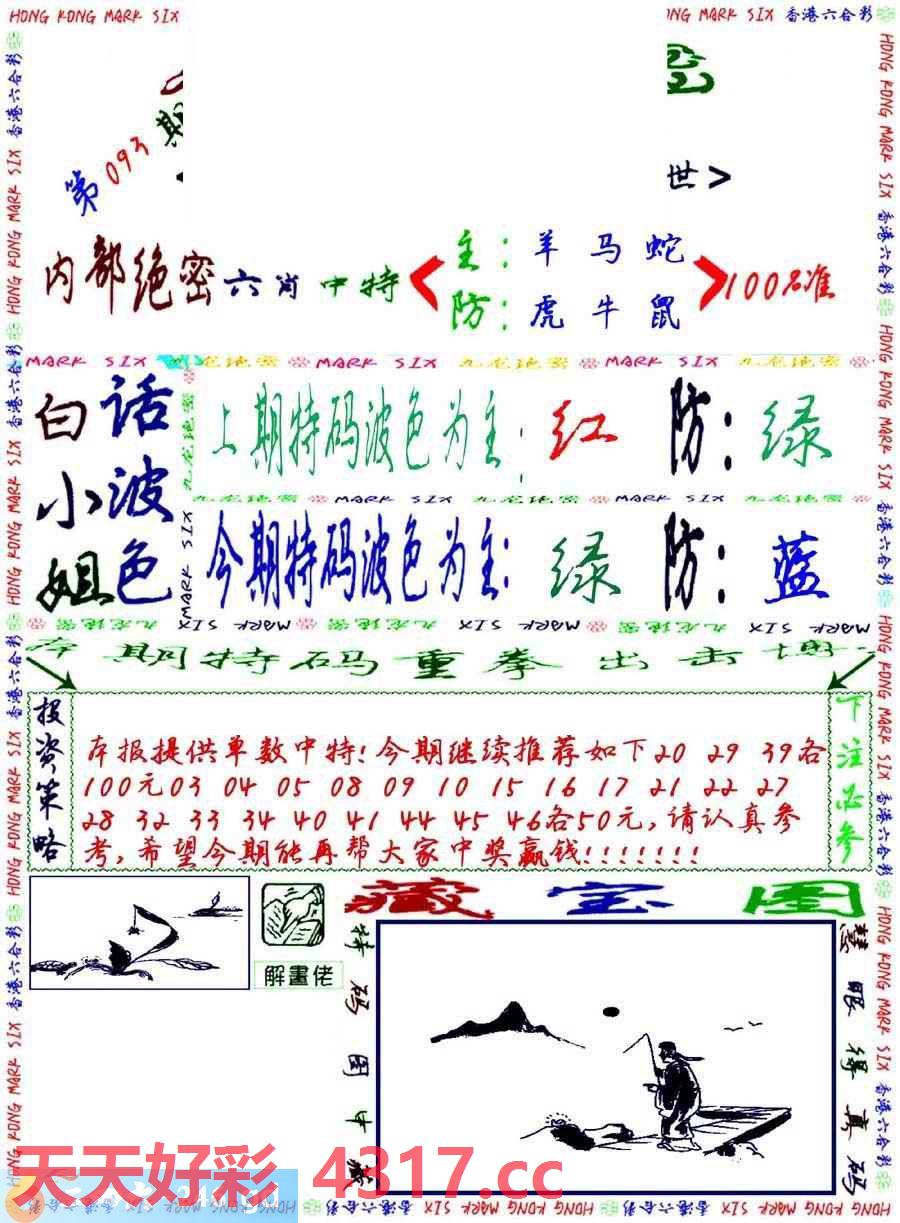 HONG KONG MARK SIX
NG MARK SIX 香港六合彩
第093期
世>
内部绝密六肖中特
主：羊马蛇
防：虎牛鼠
100%准
MARK SIX 九龙绝密 MARK SIX 九龙绝密 MARK SIX 九龙绝密
白小姐
话波色
上期特码波色为主：红 防：绿
九龙绝密 MARK SIX 九龙绝密 MARK SIX
今期特码波色为主：绿 防：蓝
MARK SIX 九龙绝密 MARK SIX 九龙绝密 MARK SIX
本期特码重拳出击
投资策略
本报提供单数中特！今期继续推荐如下20 29 39各
100元03 04 05 08 09 10 15 16 17 21 22 27
28 32 33 34 40 41 44 45 46各50元，请认真参
考，希望今期能再帮大家中奖赢钱！！！！！！！
下注必参
藏宝图
解畫佬
特码图中藏
慧眼得真码
天天好彩 4317.cc
HONG KONG MARK SIX 香港六合彩